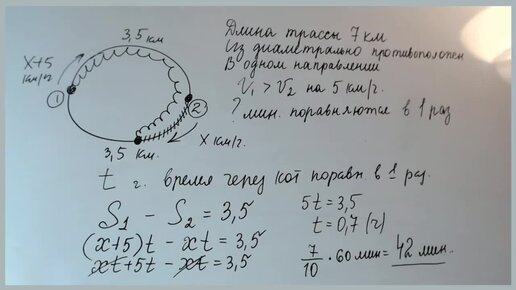 3,5 км
x+5
км/ч
1
2
x км/ч.
3,5 км.
Длина трассы 7 км
Из диаметрально противополож
В одном направлении
V₁ > V₂ на 5 км/ч.
? мин. поравняются в 1 раз
t ч. время через кот поравн. в 1 раз.
S₁ - S₂ = 3,5
(x+5)t - xt = 3,5
xt + 5t - xt = 3,5
5t = 3,5
t = 0,7 (ч)
7/10 · 60 мин = 42 мин.